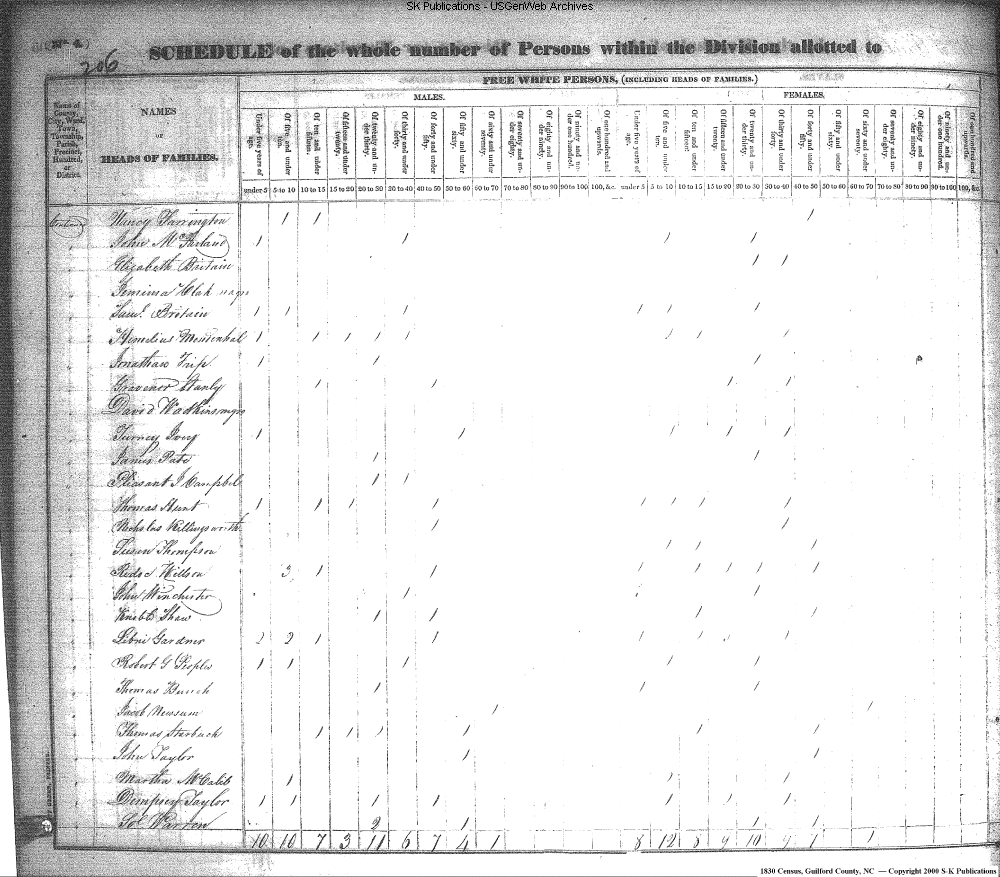 SK Publications - USGenWeb Archives
206
SCHEDULE of the whole number of Persons within the Division allotted to
FREE WHITE PERSONS, (INCLUDING HEADS OF FAMILIES.)
MALES. FEMALES.
Name of County, City, Ward, Town, Township, Parish, Precinct, Hundred, or District.
NAMES
OF
HEADS OF FAMILIES.
Under five years of age. Of five and under ten. Of ten and under fifteen. Of fifteen and under twenty. Of twenty and under thirty. Of thirty and under forty. Of forty and under fifty. Of fifty and under sixty. Of sixty and under seventy. Of seventy and under eighty. Of eighty and under ninety. Of ninety and under one hundred. Of one hundred and upwards. Under five years of age. Of five and under ten. Of ten and under fifteen. Of fifteen and under twenty. Of twenty and under thirty. Of thirty and under forty. Of forty and under fifty. Of fifty and under sixty. Of sixty and under seventy. Of seventy and under eighty. Of eighty and under ninety. Of ninety and under one hundred. Of one hundred and upwards.
under 5 5 to 10 10 to 15 15 to 20 20 to 30 30 to 40 40 to 50 50 to 60 60 to 70 70 to 80 80 to 90 90 to 100 100, &c. under 5 5 to 10 10 to 15 15 to 20 20 to 30 30 to 40 40 to 50 50 to 60 60 to 70 70 to 80 80 to 90 90 to 100 100, &c.
Nancy Farrington 1 1 1
John McFarland 1 1 1 1
Elizabeth Britain 1 1
Jemima
Saml. Britain 1 1 1 1 1 1
Mendenhall 1 1 1 1 1 1 1 1
Jonathan Trip 1 1 1
Gravenor Stanly 1 1 1 1
David Wadkins
Turney 1 1 1 1 1
James Pate 1 1
Pleasant J Campbell 1 1
Thomas Hunt 1 1 1 1 1 1 1 1
Nicholas Killingsworth 1 1
Thompson 1 1 1
Willson 3 1 1 1 1 1 1 1 1
John Winchester 1 1
Shaw 1 1 1 1
Libni Gardner 2 2 1 1 1 1 1
Robert G Peoples 1 1 1 1 1
Thomas Bunch 1 1 1
Jacob Newsum 1 1
Thomas Starbuck 1 1 1 1 1 1
John Taylor 1 1
Martha McCalib 1 1 1
Dempsey Taylor 1 1 1 1 1 1 1
Sol Warren 2 1 1 1
10 10 7 3 11 6 7 4 1 8 12 8 9 10 9 7 1
1830 Census, Guilford County, NC — Copyright 2000 S-K Publications